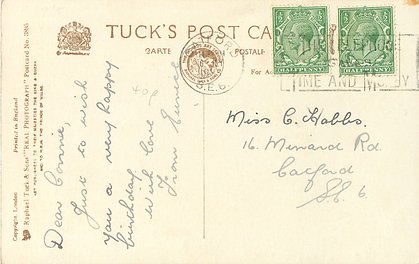 TUCK'S POST CARD
CARTE POSTALE
CATFORD
S.E.6.
HALFPENNY
HALFPENNY
THE TELEPHONE
SAVES
TIME AND MONEY
Copyright, London.
Raphael Tuck & Sons' "REAL PHOTOGRAPH" Postcard No. 3885
Printed in England
Dear Connie,
Just to wish
you a very happy
birthday
with love
From
Miss C. Hobbs.
16. Minard Rd.
Catford
S.E. 6.